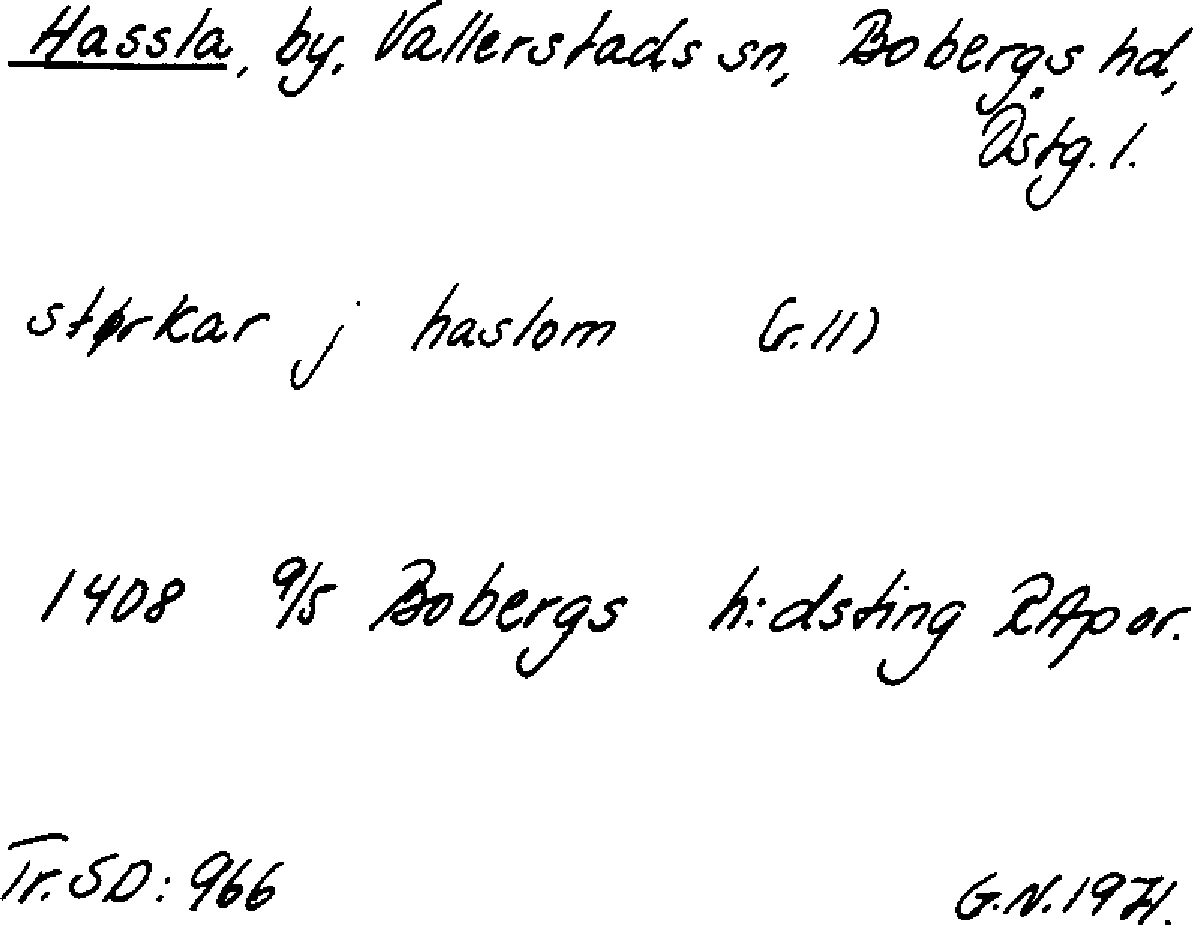 Hassla, by, Vallerstads sn, Bobergs hd,
Östg. l.
størkar j haslom (r. 11)
1408 9/5 Bobergs h:dsting RAp or.
Tr. SD: 966
G.N. 1971.